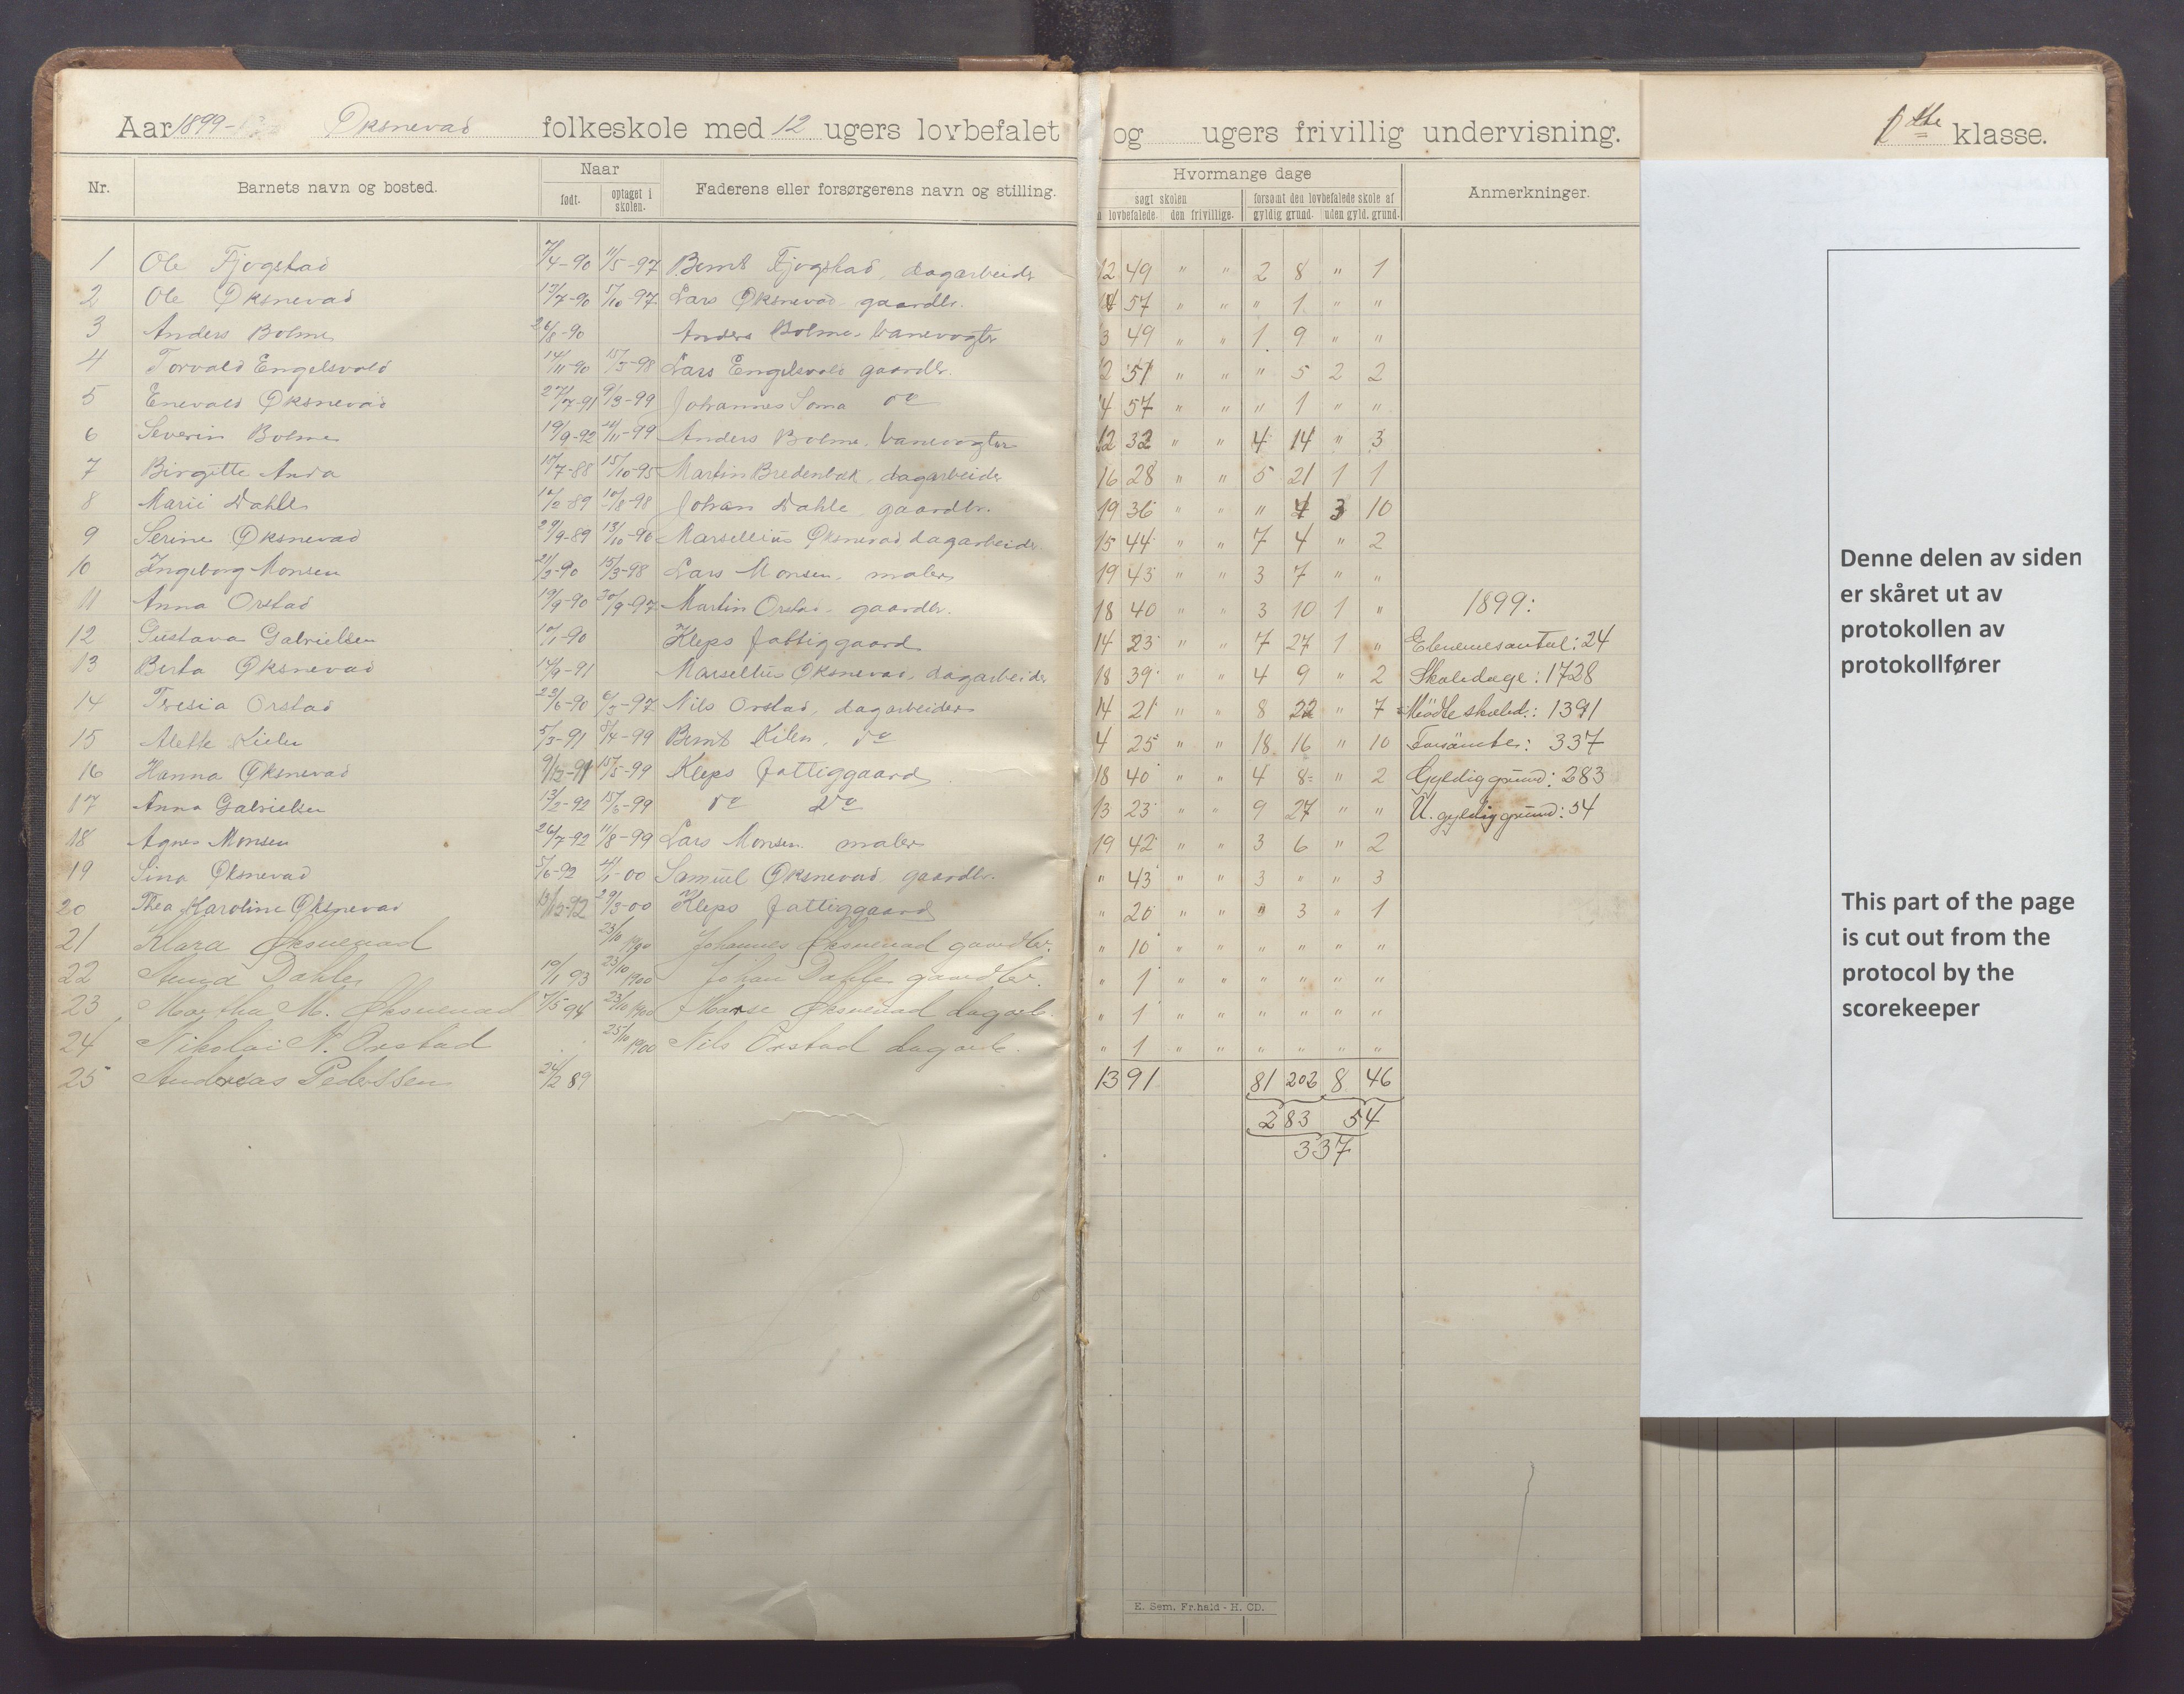 Aar 1899- Øksnevad folkeskole med 12 ugers lovbefalet og ugers frivillig undervisning. klasse.
Nr. Barnets navn og bosted. Naar Faderens eller forsørgerens navn og stilling. Hvormange dage Anmerkninger.
født. optaget i skolen. søgt skolen forsømt den lovbefalede skole af
lovbefalede. den frivillige. gyldig grund. uden gyld. grund.
1 Ole Fjogstad 7/4-90 11/5-97 Bernt Fjogstad, dagarbeider 12 49 " " 2 8 " 1
2 Ole Øksnevad 13/7-90 5/10-97 Lars Øksnevad gaardbr. 14 57 " " " 1 " "
3 Anders Bolme 26/8-90 Anders Bolme, banevogter 3 49 " " 1 9 " "
4 Torvald Engelsvold 14/11-90 15/3-98 Lars Engelsvold gaardbr. 12 51 " " " 5 2 2
5 Enevald Øksnevad 27/7-91 9/3-99 Johannes Soma do 4 57 " " " 1 " "
6 Severin Bolme 19/9-92 /11-99 Anders Bolme, banevogter 12 32 " " 4 14 " 3
7 Birgitte Anda /7-88 15/10-95 Martin Bredenbæk, dagarbeider 16 28 " " 5 21 1 1
8 Marie Dahle -89 /8-98 Johan Dahle, gaardbr. 19 36 " " " 4 3 10
9 Serine Øksnevad 29/9-89 13/10-96 Marsellius Øksnevad dagarbeider 15 44 " " 7 4 " 2
10 Ingeborg Monsen 21/3-90 15/3-98 Lars Monsen, maler 19 43 " " 3 7 " "
11 Anna Orstad 19/9-90 30/9-97 Martin Orstad, gaardbr. 18 40 " " 3 10 1 " 1899:
12 Gustava Gabrielsen /1-90 Kleps fattiggaard 14 23 " " 7 27 1 " Elevernesantal: 24
13 Berta Øksnevad /9-91 Marsellius Øksnevad, dagarbeider 18 39 " " 4 9 " 2 Skoledage: 1728
14 Tresia Orstad 23/6-90 6/5-97 Nils Orstad, dagarbeider 14 21 " " 8 22 " 7 Mødte skoled.: 1391
15 Alette Kielen 5/3-91 8/4-99 Bernt Kilen, do 4 25 " " 18 16 " 10 Forsømte: 337
16 Hanna Øksnevad 9/12-91 15/5-99 Kleps fattiggaard 18 40 " " 4 8 " 2 Gyldig grund: 283
17 Anna Gabrielsen 13/2-92 15/3-99 do do 13 23 " " 9 27 " " U. gyldig grund: 54
18 Agnes Monsen 26/7-92 11/8-99 Lars Monsen maler 19 42 " " 3 6 " 2
19 Sina Øksnevad 5/6-92 /1-00 Samuel Øksnevad, gaardbr. " 43 " " 3 " " 3
20 Thea Karoline Øksnevad 13/12-92 29/3-00 Kleps fattiggaard " 20 " " " 3 " 1
21 Klara Øksnevad 23/10 1900 Johannes Øksnevad gaardbr. " 10 " " " " " "
22 Anna Dahle 19/1 93 23/10 1900 Johan Dahle gaardbr. " 1 " " " " " "
23 Martha M. Øksnevad 7/5 94 23/10 1900 Marse Øksnevad dagarb. " 1 " " " " " "
24 Nikolai N. Orstad 25/10 1900 Nils Orstad dagarb. " 1 " " " " " "
25 Andreas Pederssen 24/2 89 1391 81 202 8 46
283 54
337
E. Sem. Fr.hald - H. CD.
Denne delen av siden
er skåret ut av
protokollen av
protokollfører
This part of the page
is cut out from the
protocol by the
scorekeeper